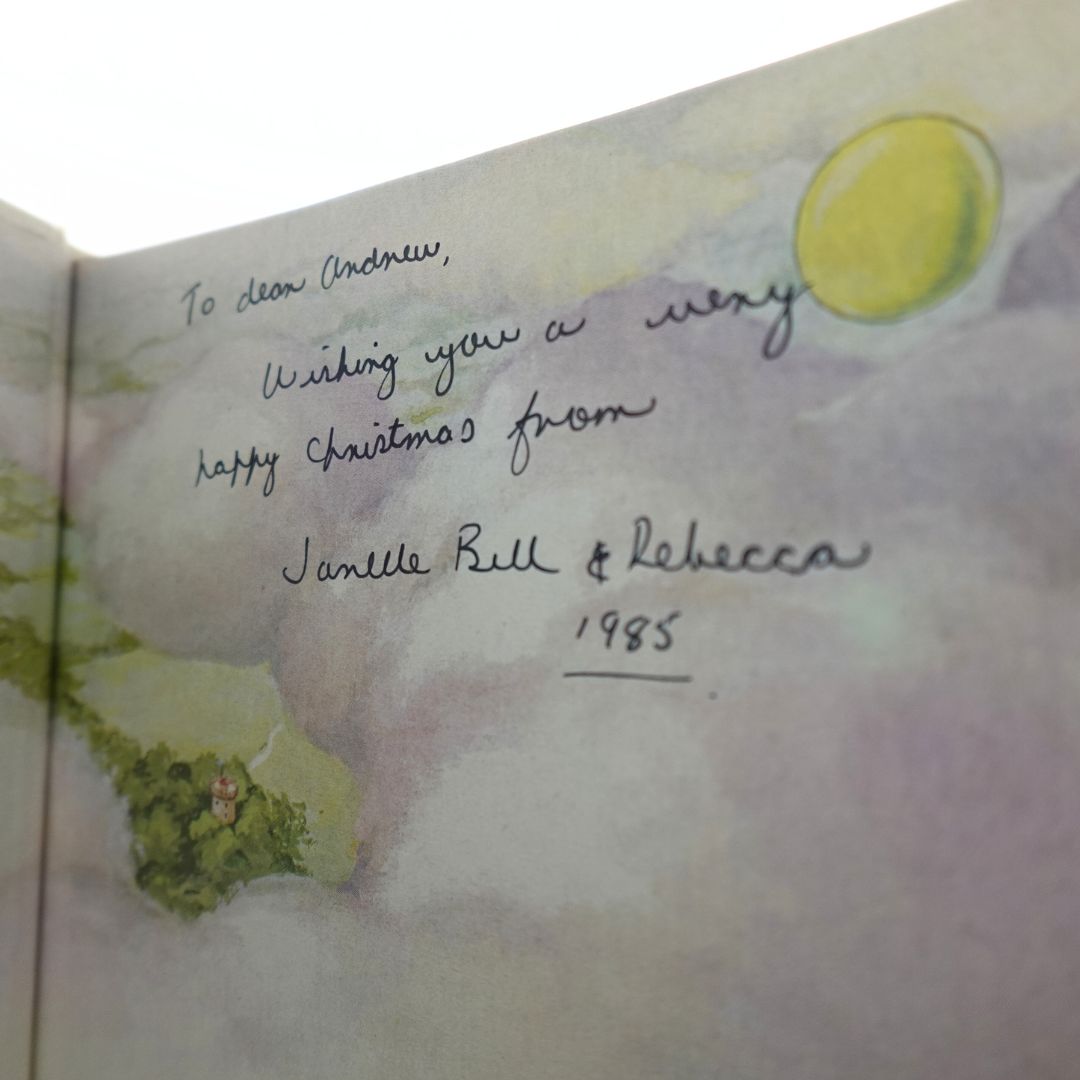 To dear Andrew,
Wishing you a very
happy Christmas from
Janelle Bill & Rebecca
1985